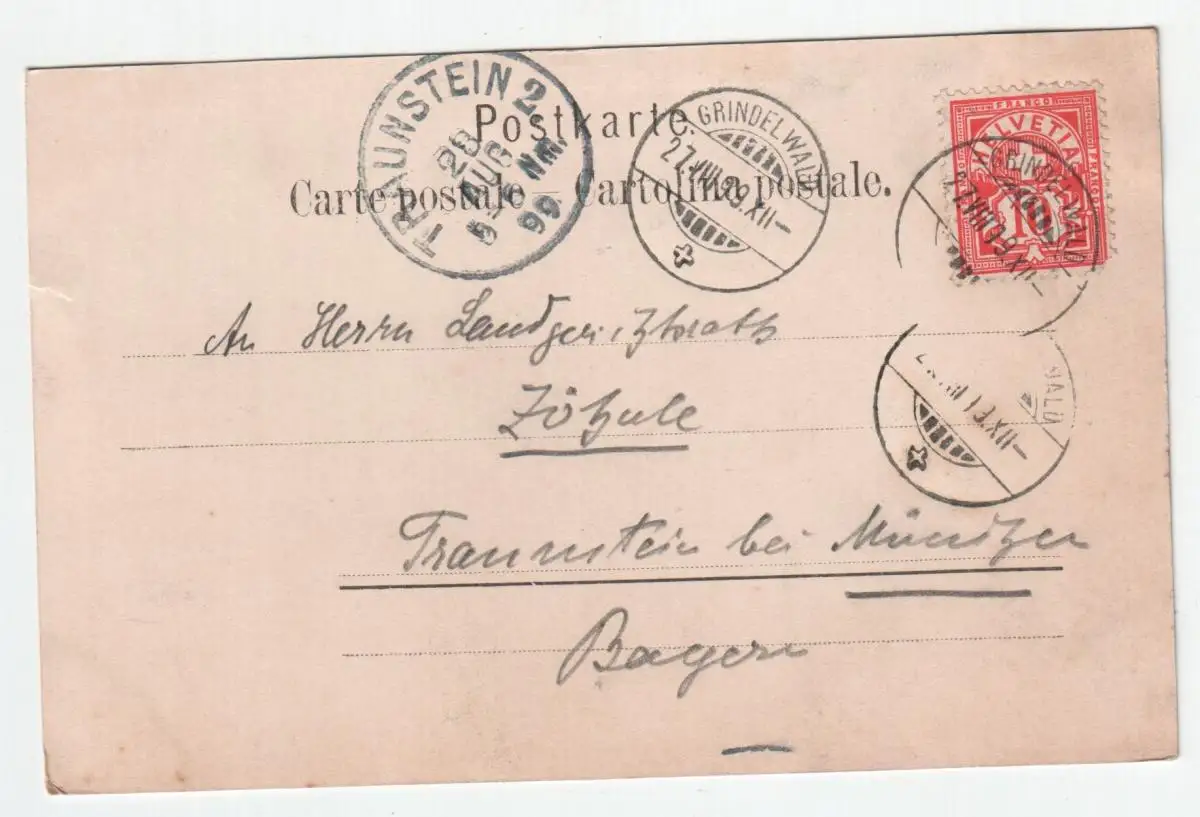 Postkarte.
Carte postale – Cartolina postale.
TRAUNSTEIN 2.
28
AUG
5-6 Nm.
99
GRINDELWALD
27.VIII.99.XII–
FRANCO
HELVETIA
FRANCO
10
GRINDELWALD
27.VIII.99.XII–
WALD
XII–
An Herrn Landgerichtsrath
Traunstein bei München
Bayern